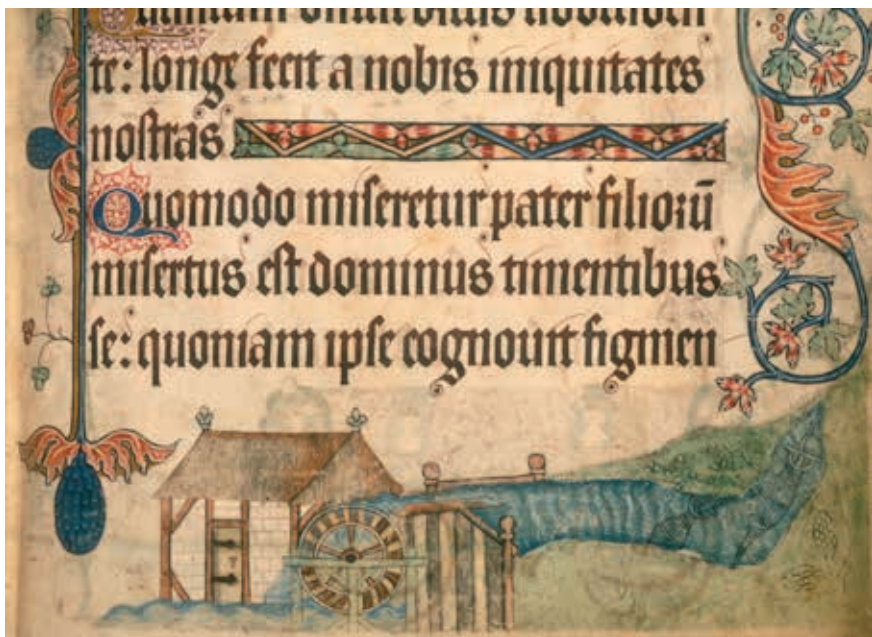 te: longe fecit a nobis iniquitates
nostras
Quomodo miseretur pater filiorū
misertus est dominus timentibus
se: quoniam ipse cognouit figmen